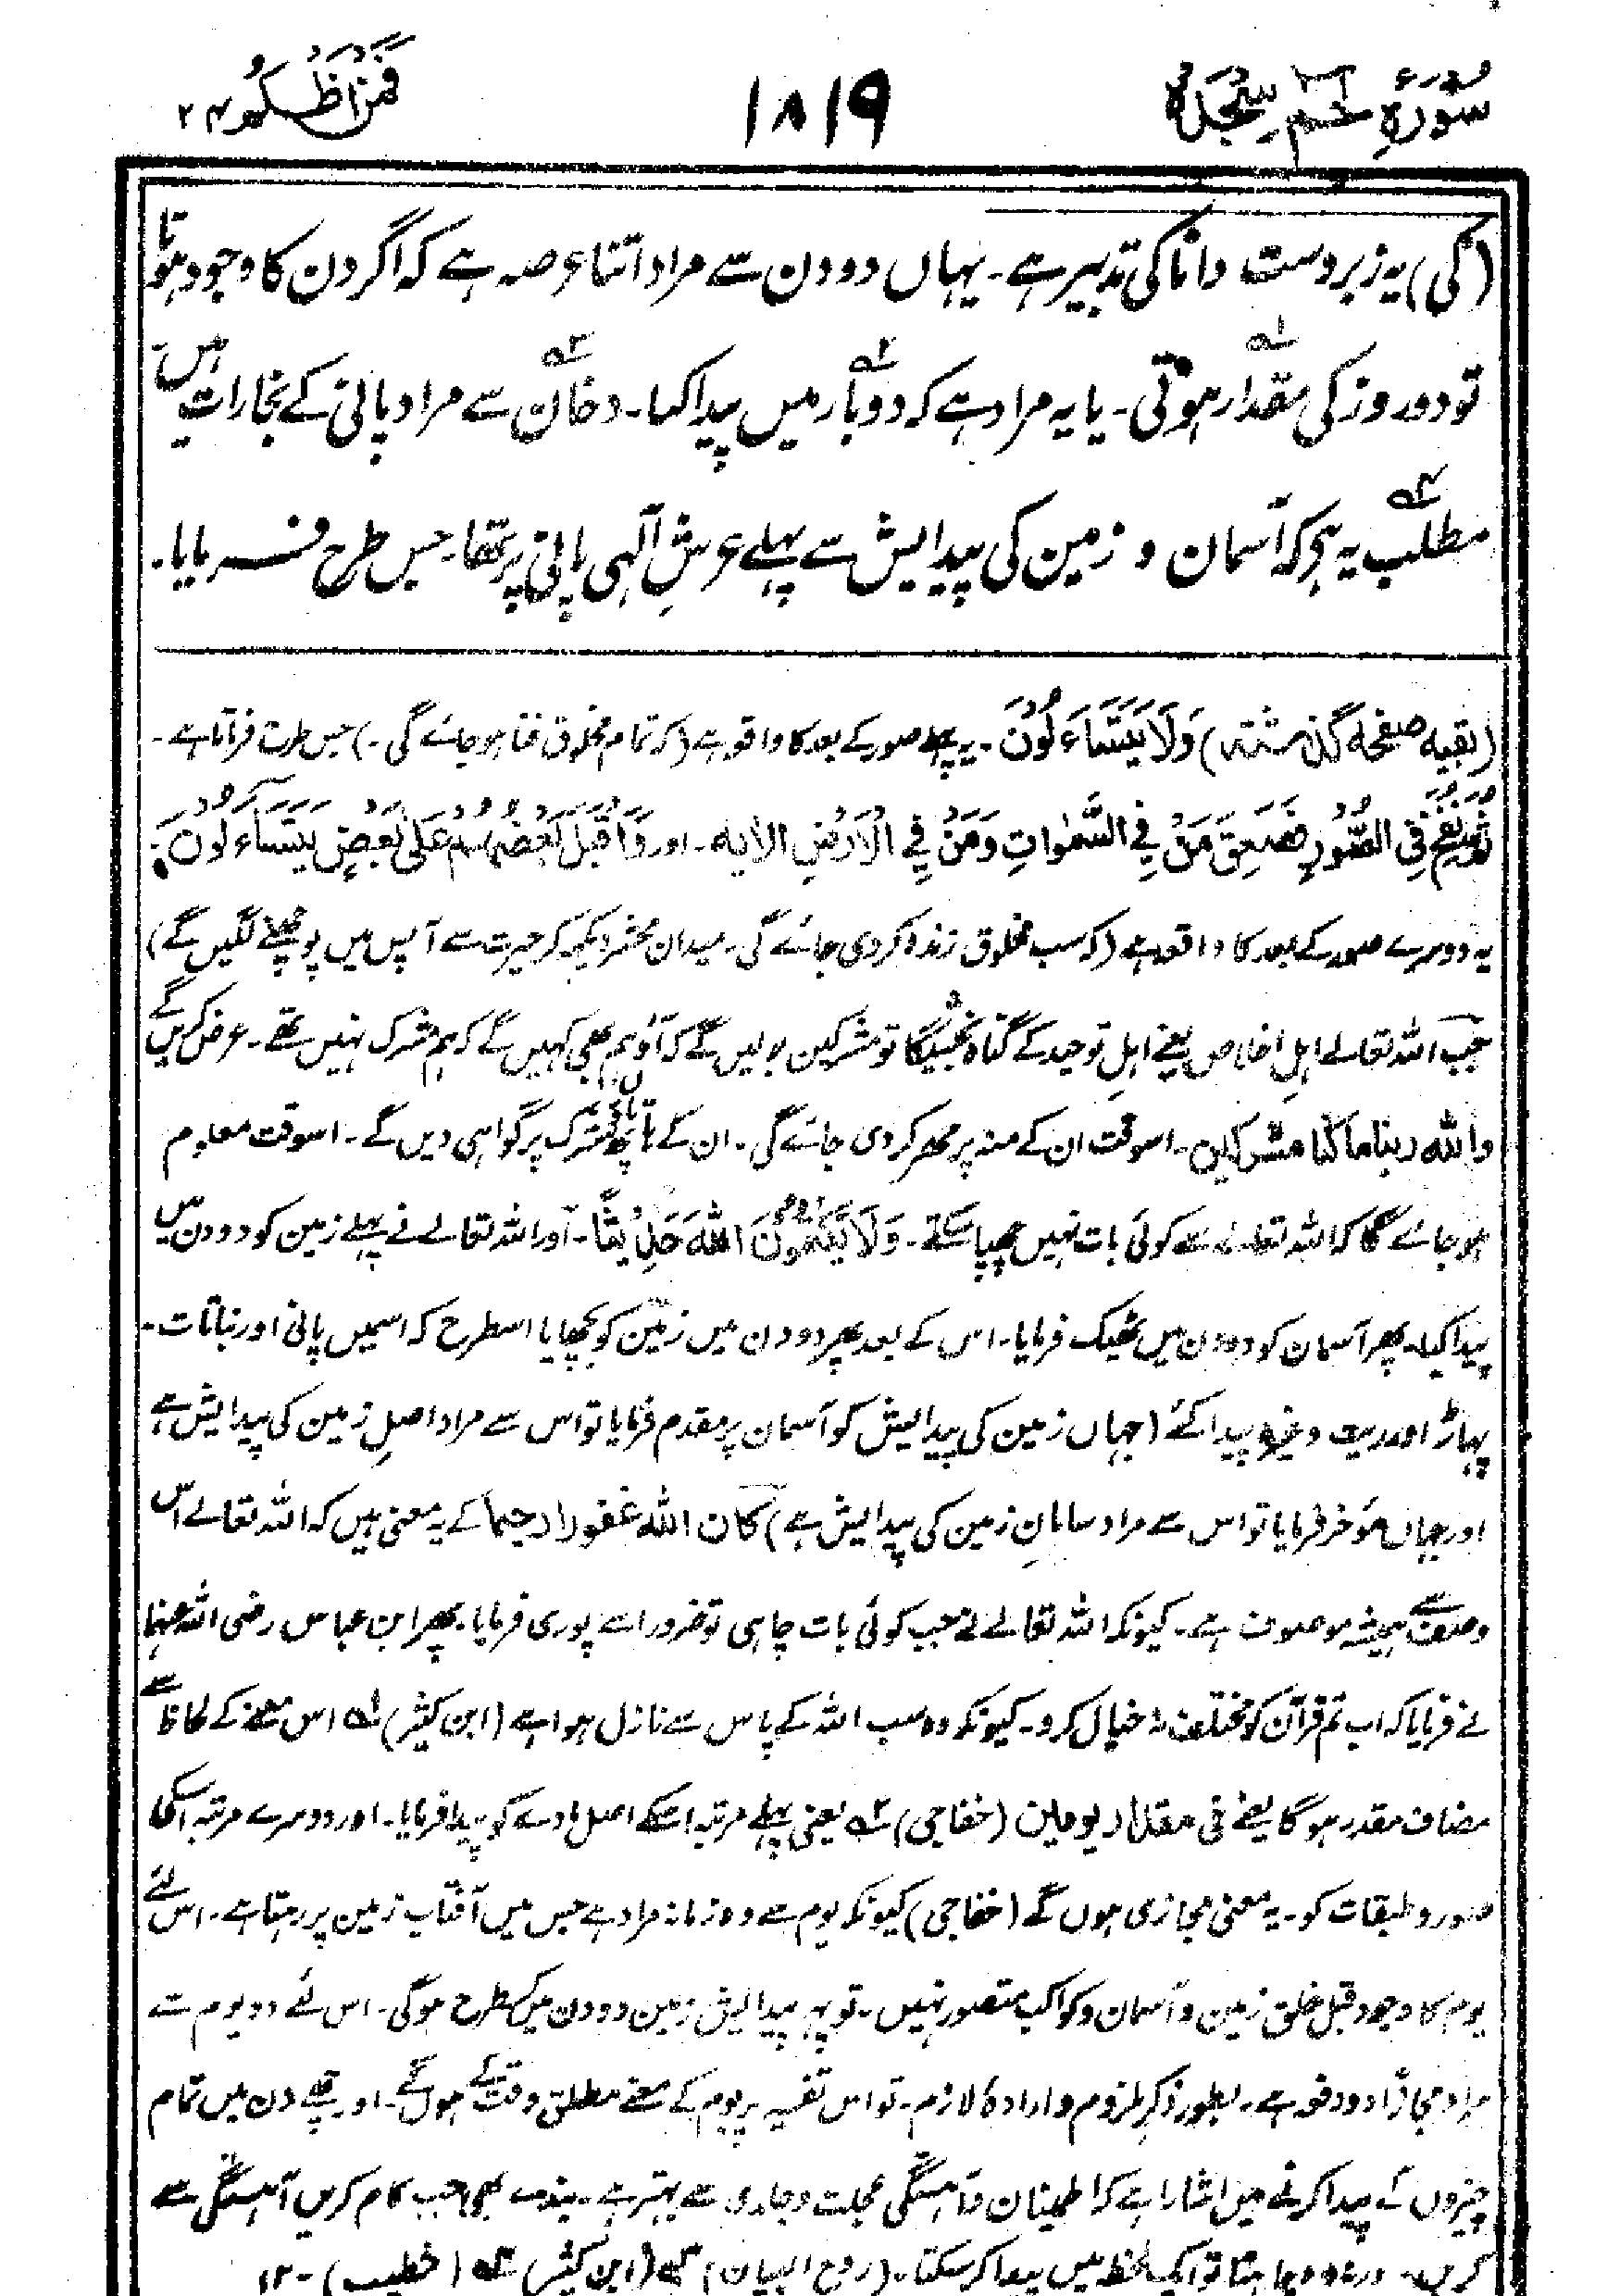 سورۂ حٰم سجدہ ۱۸۱۹ فمن اظلم ۲۴
(کی) یہ زبردست دانا کی تدبیر ہے۔ یہاں دو دن سے مراد اتنا عرصہ ہے کہ اگر دن کا وجود ہوتا
تو دو روز کی مقدار ہوتی۱۔ یا یہ مراد ہے کہ دو بار۲ میں پیدا کیا۔ دخان۳ سے مراد پانی کے بخارات ہیں۔
مطلب۴ یہ ہی کہ آسمان و زمین کی پیدایش سے پہلے عرشِ آلٰہی پانی پر تھا۔ جس طرح فرمایا۔
(بقیہ صفحہ گذشتہ) وَلَا يَتَسَاءَلُوْنَ۔ یہ پہلے صور کے بعد کا واقعہ ہے (کہ تمام مخلوق فنا ہو جائے گی۔) جس طرح فرماتا ہے۔
ثُمَّ نُفِخَ فِی الصُّوْرِ فَصَعِقَ مَنْ فِی السَّمٰوٰتِ وَمَنْ فِی الْاَرْضِ الایہ۔ اور وَاَقْبَلَ بَعْضُهُمْ عَلٰی بَعْضٍ يَتَسَاءَلُوْنَ۔
یہ دوسرے صور کے بعد کا واقعہ ہے (کہ سب مخلوق زندہ کر دی جائے گی۔ میدان محشر دیکھ کر حیرت سے آپس میں پوچھنے لگیں گے)
جب اللہ تعالےٰ اہلِ اخلاص یعنے اہلِ توحید کے گناہ بخشیگا تو مشرکین بولیں گے کہ آؤ ہم بھی کہیں گے کہ ہم مشرک نہیں تھے۔ عرض کریں گے
واللہ ربنا ما کنا مشرکین۔ اسوقت ان کے منہ پر مہر کر دی جائے گی۔ ان کے ہاتھ پاؤں شرک پر گواہی دیں گے۔ اسوقت معلوم
ہو جائے گا کہ اللہ تعالےٰ سے کوئی بات نہیں چھپا سکتے۔ وَلَا يَكْتُمُوْنَ اللہَ حَدِيْثًا۔ اور اللہ تعالےٰ نے پہلے زمین کو دو دن میں
پیدا کیا۔ پھر آسمان کو دو دن میں ٹھیک فرمایا۔ اس کے بعد پھر دو دن میں زمین کو بچھایا اسطرح کہ اسمیں پانی اور نباتات۔
پہاڑ اور ریت وغیرہ پیدا کئے (جہاں زمین کی پیدایش کو آسمان پر مقدم فرمایا تو اس سے مراد اصلِ زمین کی پیدایش ہے
اور جہاں مؤخر فرمایا تو اس سے مراد سامانِ زمین کی پیدایش ہے) کان اللہ غفورا رحیما کے یہ معنی ہیں کہ اللہ تعالےٰ اس
وصف سے ہمیشہ موصوف ہے۔ کیونکہ اللہ تعالےٰ نے جب کوئی بات چاہی تو ضرور اسے پوری فرمایا۔ پھر ابن عباس رضی اللہ عنہما
نے فرمایا کہ اب تم قرآن کو مختلف نہ خیال کرو۔ کیونکہ وہ سب اللہ کے پاس سے نازل ہوا ہے (ابن کثیر) ۱ اس معنے کے لحاظ سے
مضاف مقدر ہو گا یعنے فی مقدار یومین (خفاجی) ۲ یعنی پہلے مرتبہ اسکے اصل مادے کو پیدا فرمایا۔ اور دوسرے مرتبہ اسکی
صور و طبقات کو۔ یہ معنی مجازی ہوں گے (خفاجی) کیونکہ یوم سے وہ زمانہ مراد ہے جس میں آفتاب زمین پر رہتا ہے۔ اس لئے
یوم کا وجود قبل خلق زمین و آسمان و کواکب متصور نہیں۔ تو پھر پیدایش زمین دو دن میں کسطرح ہوگی۔ اس لئے دو یوم سے
مراد مجازًا دو دفعہ ہے۔ بطور ذکرِ ملزوم و ارادہ لازم۔ تو اس تفسیر پر یوم کے معنے مطلق وقت کے ہوں گے۔ اور چھے دن میں تمام
چیزوں کے پیدا کرنے میں اشارا ہے کہ اطمینان و آہستگی عجلت و جلدی سے بہتر ہے۔ بندے بھی جب کام کریں آہستگی سے
کریں۔ ورنہ وہ چاہتا تو ایک لحظہ میں پیدا کر سکتا۔ (روح البیان) ۳ (ابن کثیر) ۴ (خطیب) ۔۱۲